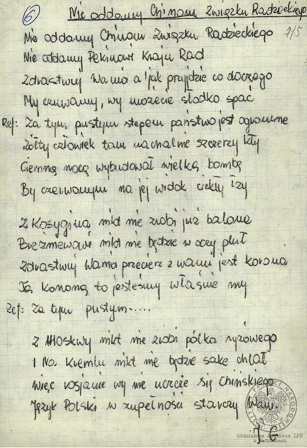 6
Nie oddamy Chinom Związku Radzieckiego
2/5
Nie oddamy Chinom Związku Radzieckiego
Nie oddamy Pekinowi Kraju Rad
Zdrastwuj Wania a jak przyjdzie co do czego
My czuwamy, wy możecie słodko spać
Ref: Za tym pustym stepem państwo jest ogromne
Żółty człowiek tam nachalnie szczerzy kły
Ciemną nocą wybudował wielką bombę
By czerwonym na jej widok ciekły łzy
Z Kosygina nikt nie zrobi już balona
Breżniewowi nikt nie będzie w oczy pluł
Zdrastwuj Wania przecież z wami jest korona
Tą koroną to jesteśmy właśnie my
Ref: Za tym pustym.....
Z Moskwy nikt nie zrobi pólka ryżowego
I na Kremlu nikt nie będzie sake chlał
Więc rosjanie wy nie uczcie się chińskiego
Język Polski w zupełności starczy Wam.